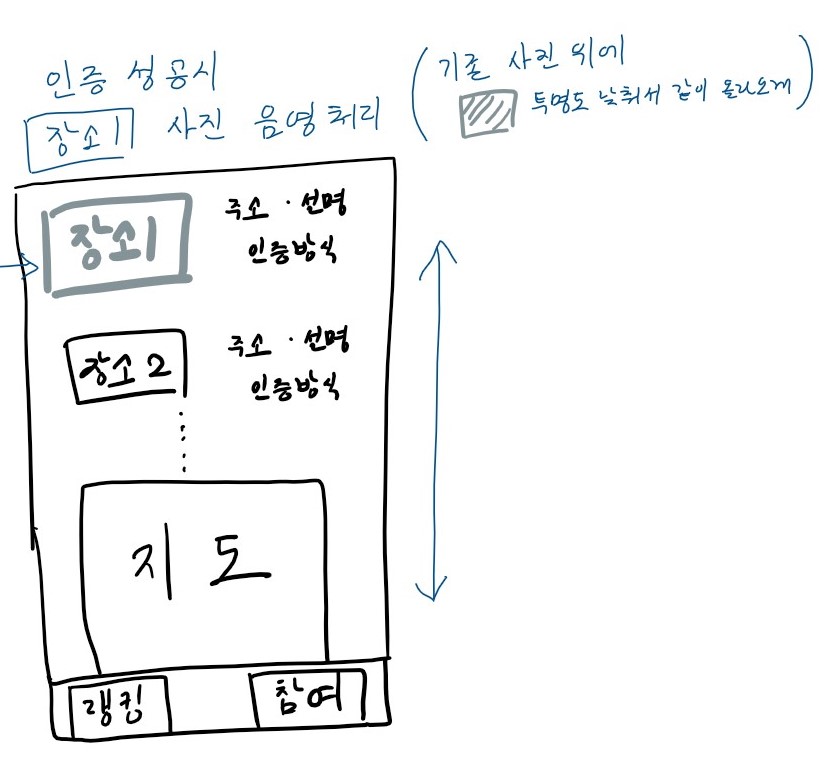 인증 성공시
장소1 사진 음영처리
(기존 사진 위에
투명도 낮춰서 같이 올라오게)
장소1
주소 · 설명
인증방식
장소 2
주소 · 설명
인증방식
지도
랭킹
참여